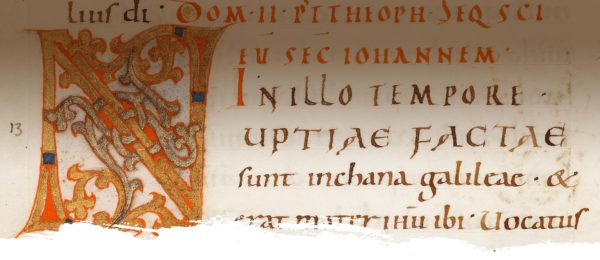 lius di · DOM · II · P̄ THIOPH · SEQ SCI
EU SEC̄ IOHANNEM ·
IN ILLO TEMPORE ·
13
NUPTIAE FACTAE
sunt inchana galileae · &
erat mater ihū ibi · Uocatus